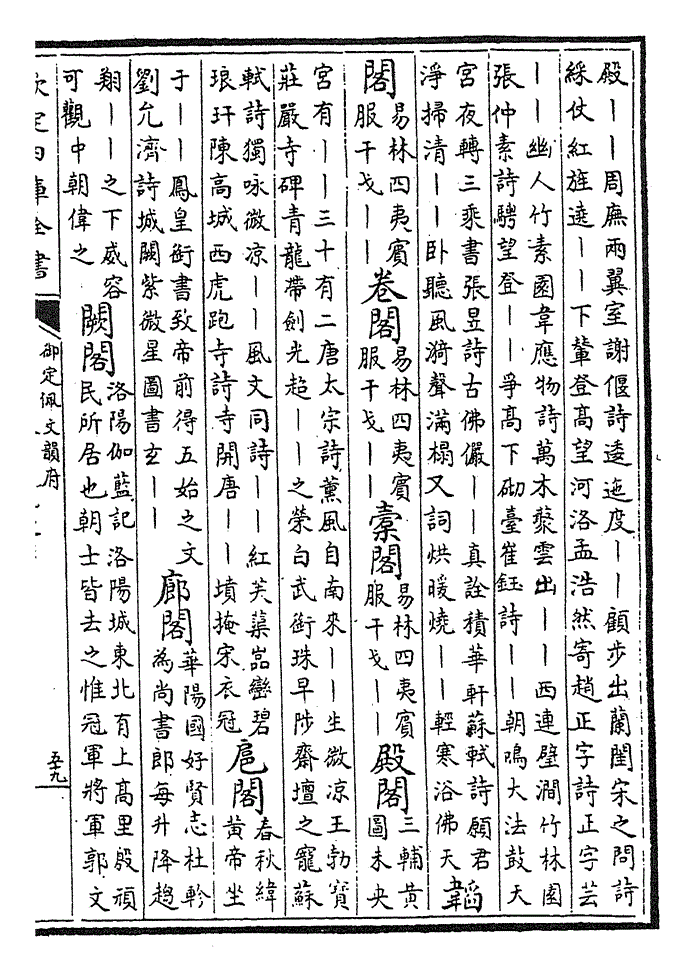 殿——周廡兩翼室謝偃詩逶迤度——顧步出蘭閨宋之問詩
綵仗紅旌遶——下輦登高望河洛孟浩然寄趙正字詩正字芸
——幽人竹素園韋應物詩萬木叢雲出——西連壁澗竹林園
張仲素詩騁望登——爭高下砌臺崔鈺詩——朝鳴大法鼓天
宮夜轉三乘書張昱詩古佛儼——真詮積華軒蘇軾詩願君
淨掃清——卧聽風漪聲滿榻又詞烘暖燒——輕寒浴佛天
韜
閣
易林四夷賓
服干戈——
卷閣
易林四夷賓
服干戈——
櫜閣
易林四夷賓
服干戈——
殿閣
三輔黃
圖未央
宮有——三十有二唐太宗詩薰風自南來——生微凉王勃寶
莊嚴寺碑青龍帶劍光超——之榮白武銜珠早陟齋壇之寵蘇
軾詩獨咏微凉——風文同詩——紅芙蕖嵓巒碧
琅玕陳高城西虎跑寺詩寺開唐——墳掩宋衣冠
扈閣
春秋緯
黃帝坐
于——鳳皇銜書致帝前得五始之文
劉允濟詩城闕紫微星圖書玄——
廊閣
華陽國好賢志杜軫
為尚書郎每升降趨
翔——之下威容
可觀中朝偉之
闕閣
洛陽伽藍記洛陽城東北有上高里殷頑
民所居也朝士皆去之惟冠軍將軍郭文
欽定四庫全書
御定佩文韻府
五十九